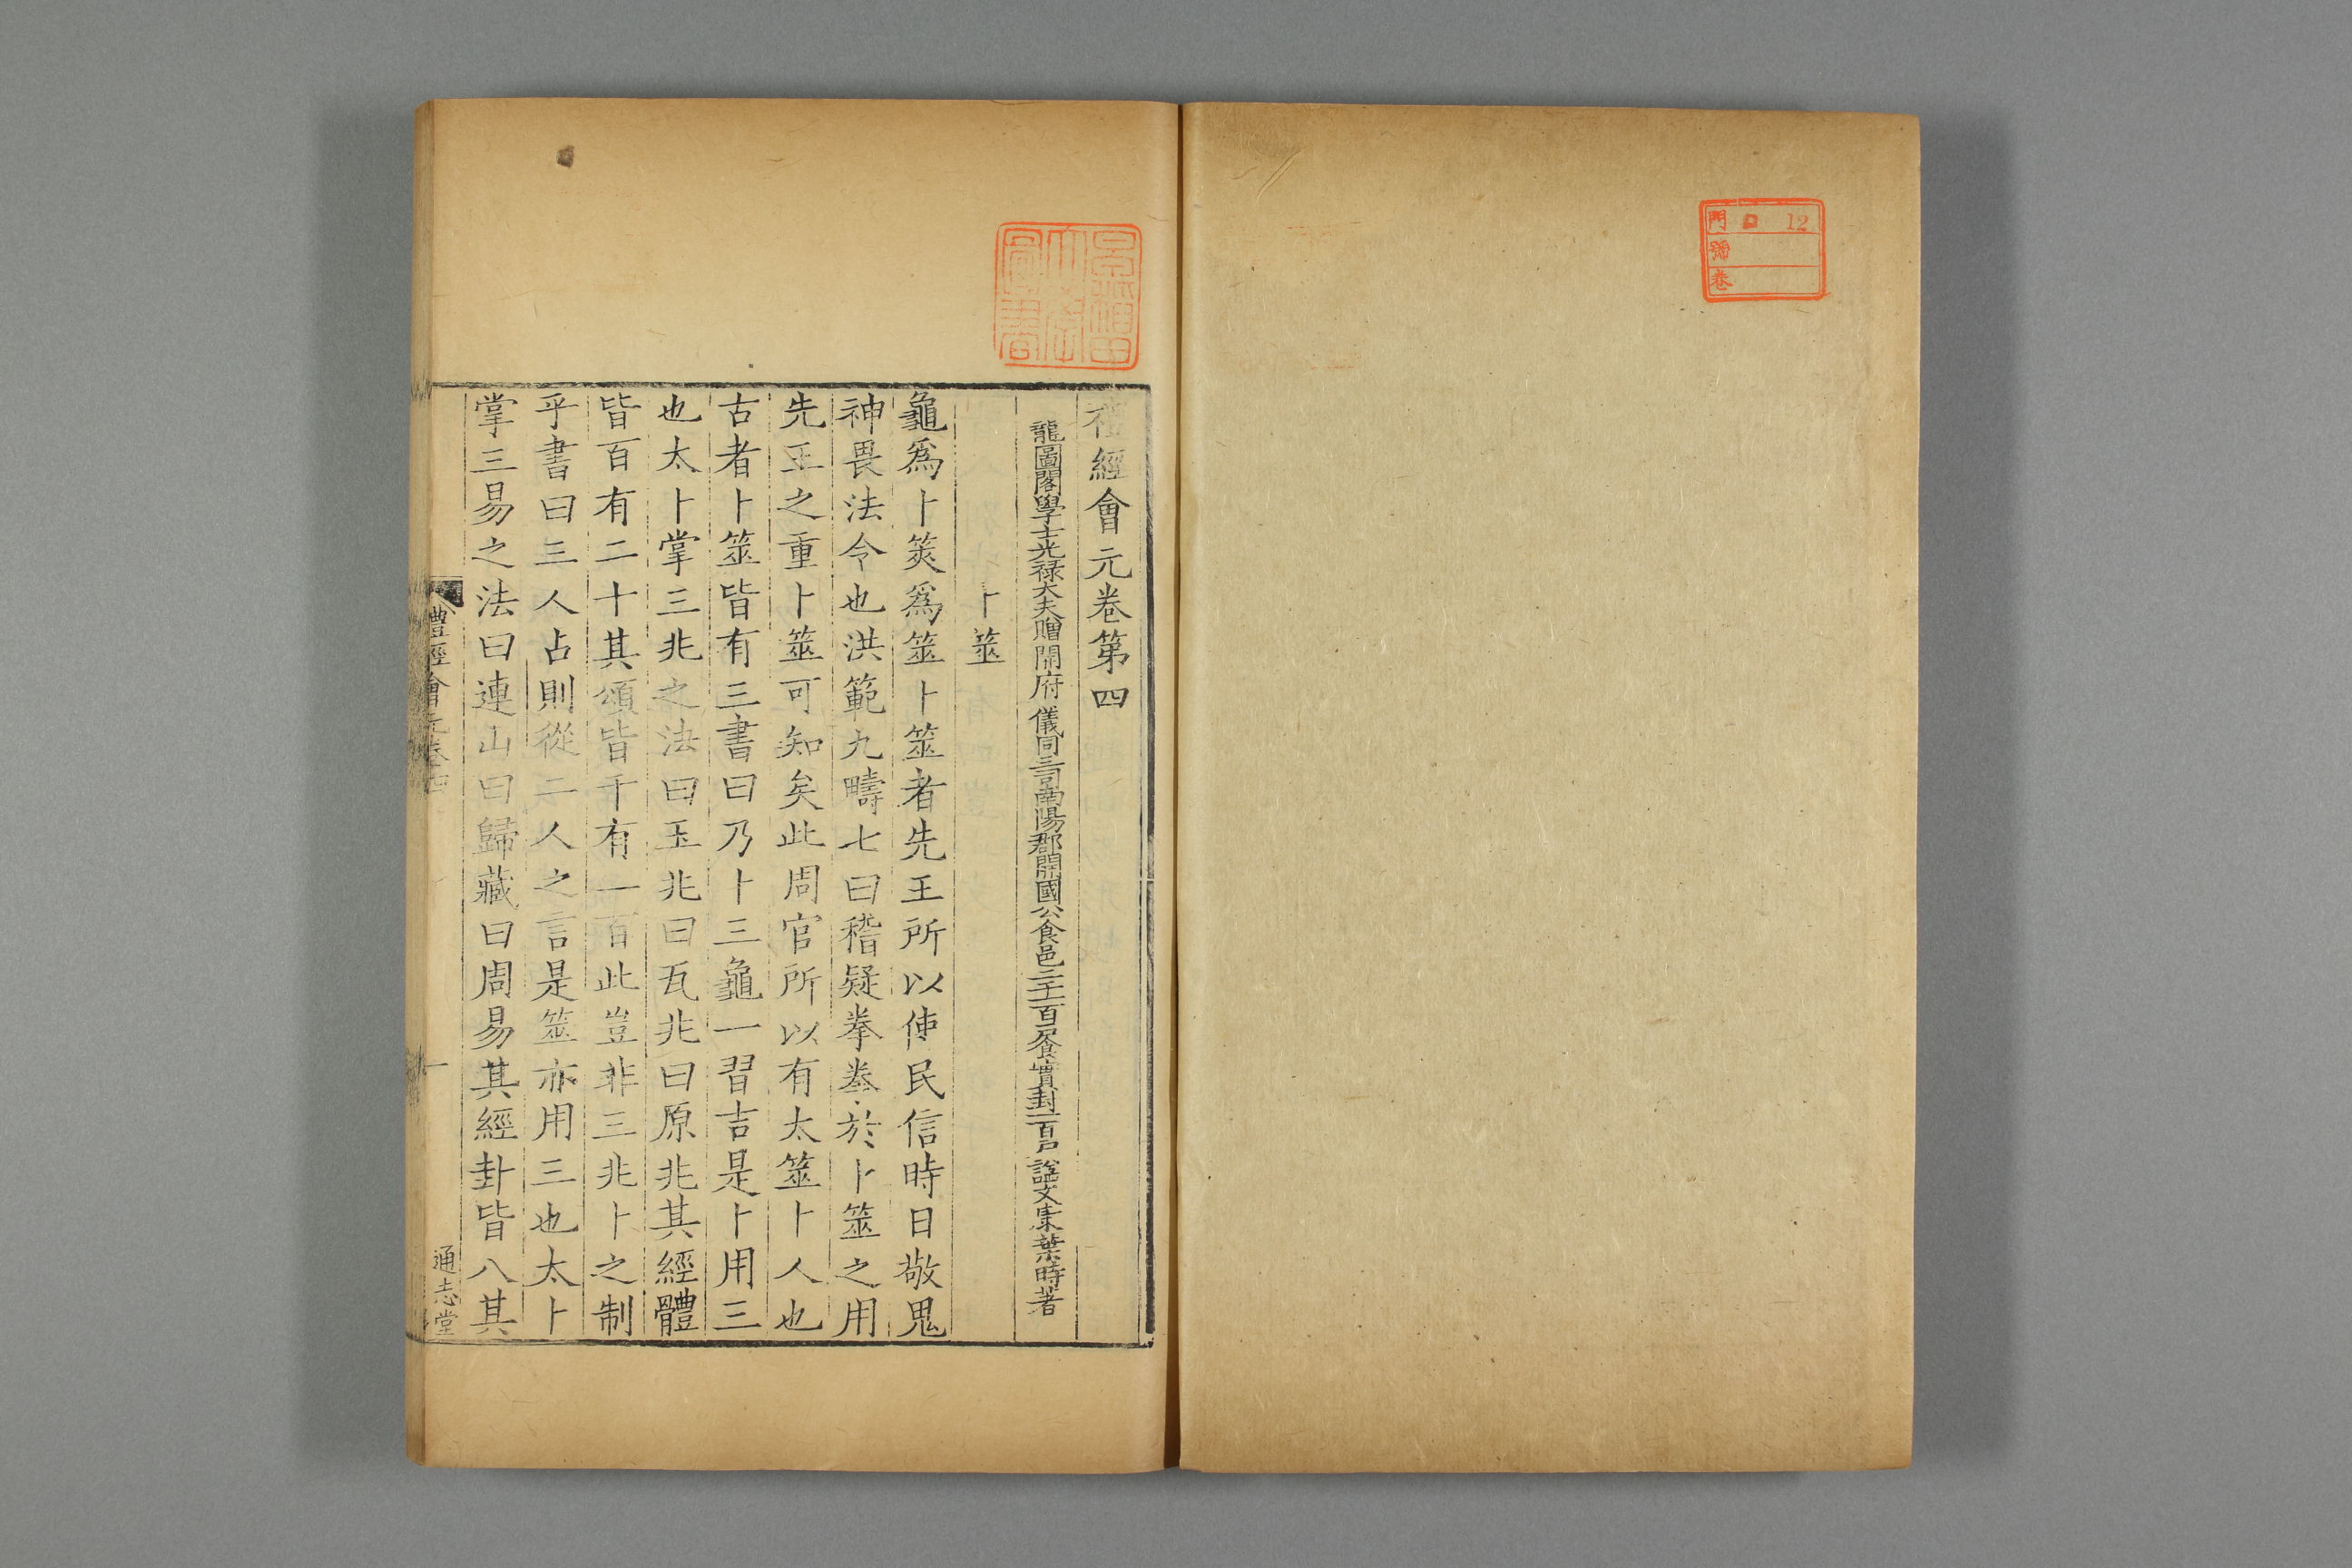 門 口 12
號
卷
禮經會元卷第四
龍圖閣學士光祿大夫贈開府儀同三司南陽郡開國公食邑二千一百戶食實封一百戶謚文康葉時著
卜筮
龜爲卜筴爲筮卜筮者先王所以使民信時日敬鬼
神畏法令也洪範九疇七曰稽疑拳拳於卜筮之用
先王之重卜筮可知矣此周官所以有太筮卜人也
古者卜筮皆有三書曰乃卜三龜一習吉是卜用三
也太卜掌三兆之法曰玉兆曰瓦兆曰原兆其經體
皆百有二十其頌皆千有一百此豈非三兆卜之制
乎書曰三人占則從二人之言是筮亦用三也太卜
掌三易之法曰連山曰歸藏曰周易其經卦皆八其
禮經會元卷四
一
通志堂